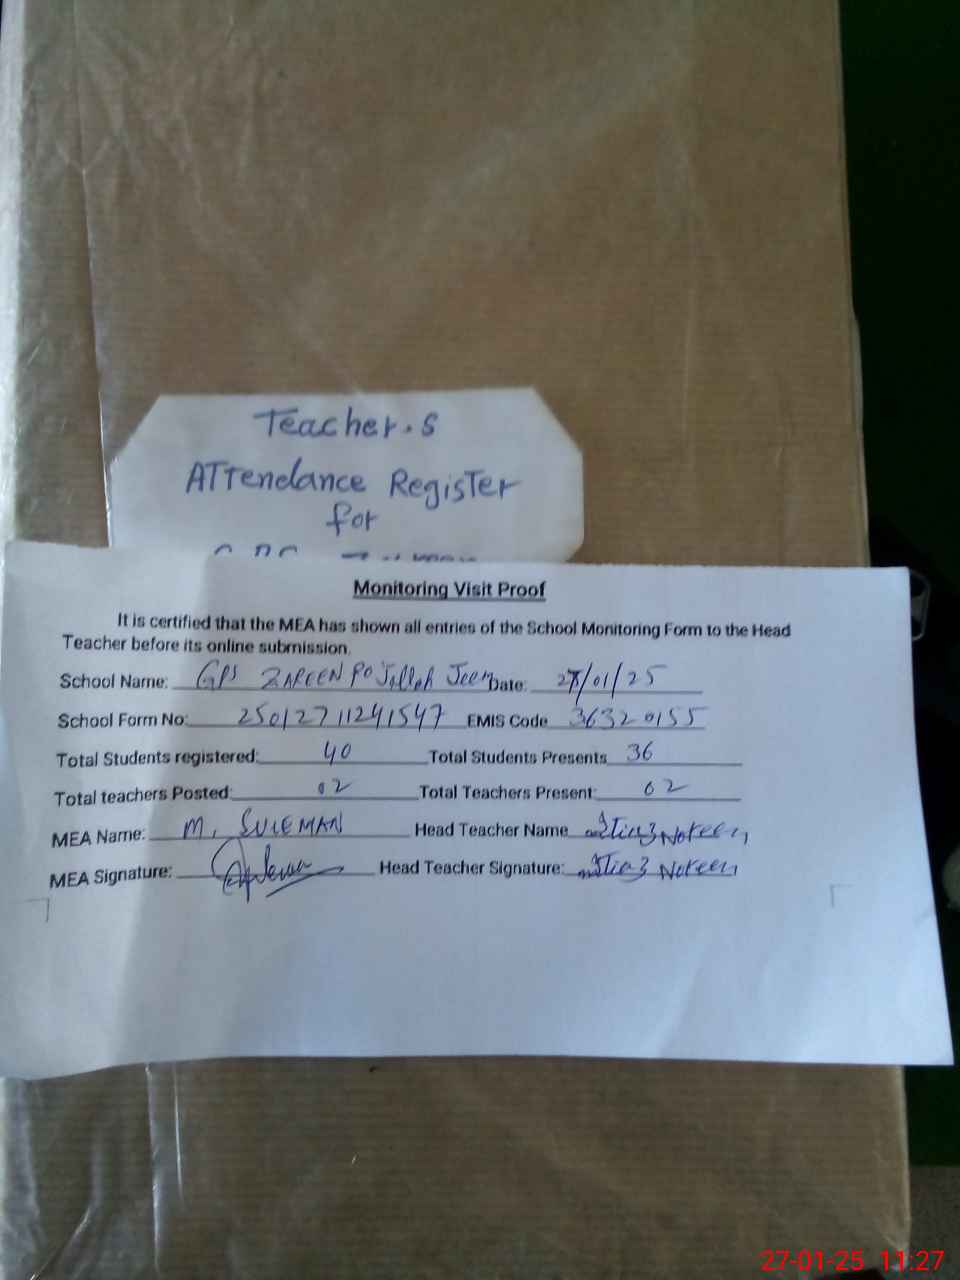 Teacher.s
ATTendance Register
for
Monitoring Visit Proof
It is certified that the MEA has shown all entries of the School Monitoring Form to the Head
Teacher before its online submission.
School Name: GPS ZAREEN Date: /01/25
School Form No: 25012711241547 EMIS Code 36320155
Total Students registered: 40 Total Students Presents 36
Total teachers Posted: 02 Total Teachers Present: 02
MEA Name: M. SULEMAN Head Teacher Name Noreen
MEA Signature: Head Teacher Signature: Noreen
27-01-25 11:27